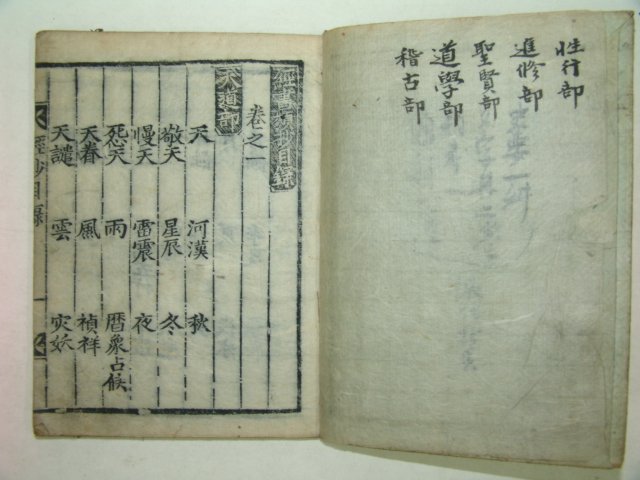 性行部
進修部
聖賢部
道學部
稽古部
經書類抄目錄
卷之一
天道部
天 河漢 秋
敬天 星辰 冬
慢天 雷震 夜
怨天 雨 曆象占候
天眷 風 禎祥
天譴 雲 灾妖
抄目録